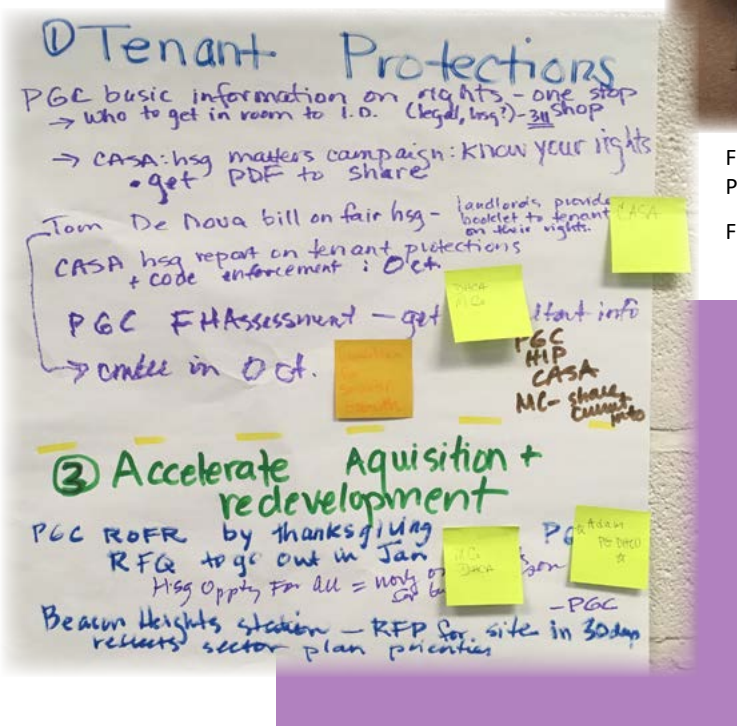 ① Tenant Protections
PGC basic information on rights - one stop
→ Who to get in room to I.D. (legal, hsg?) - 311 shop
→ CASA: hsg matters campaign: Know your rights
• get PDF to share
Tom De Nova bill on fair hsg - landlords provide
booklet to tenant
on their rights.
CASA
CASA hsg report on tenant protections
+ code enforcement : Oct.
DHCA
MC
PGC FHAssessment - get info
→ cmtee in Oct.
PGC
HIP
CASA
MC - share
current
info
③ Accelerate Aquisition +
redevelopment
PGC ROFR by thanksgiving
RFQ to go out in Jan
MC
DHCA
Adam
PG DHCD
Hsg Oppty For All =
- PGC
Beacon Heights station - RFP for site in 30 days
reflects sector plan priorities
F
P
F